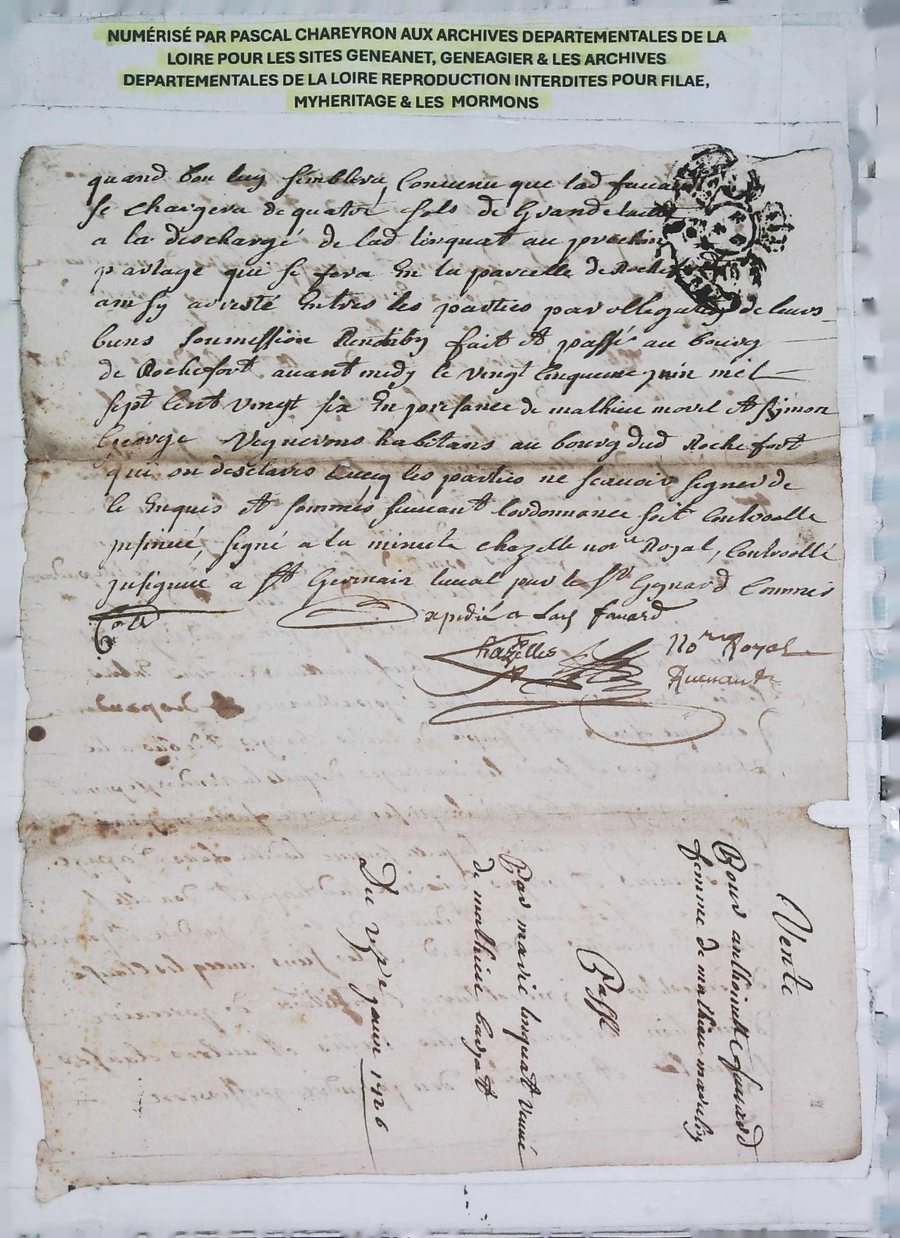 NUMÉRISÉ PAR PASCAL CHAREYRON AUX ARCHIVES DEPARTEMENTALES DE LA
LOIRE POUR LES SITES GENEANET, GENEAGIER & LES ARCHIVES
DEPARTEMENTALES DE LA LOIRE REPRODUCTION INTERDITES POUR FILAE,
MYHERITAGE & LES MORMONS
quand bon luy semblera, Convenu que lad
se chargera de quatre sols de Grande
a la descharge de lad linquat au prochin
partage qui se fera En la parcelle de Roche
ainsy aresté Entres les parties par de leurs
biens Soumission fait et passé au bourg
de Rochefort avant midy le vingt cinqieme juin mil
sept Cent vingt six En presance de mathieu morel et Symon
George Vignerons habitans au bourg dud Rochefort
qui on desclaires avecq les parties ne scavoir signer de
le Enquis et sommes suivant lordonnance soit Controlle
insinué, signé a la minute chazelle no.re Royal, Controllé
insignué a St Germain laval par le Sr Gognard Commis
Expedié a Lad fanard
Chazelles No.re Royal
Vente
Pour anthoinette fanard
femme de mathieu
Passé
Par marie linquat veuve
de mathieu
Du 25e juin 1726